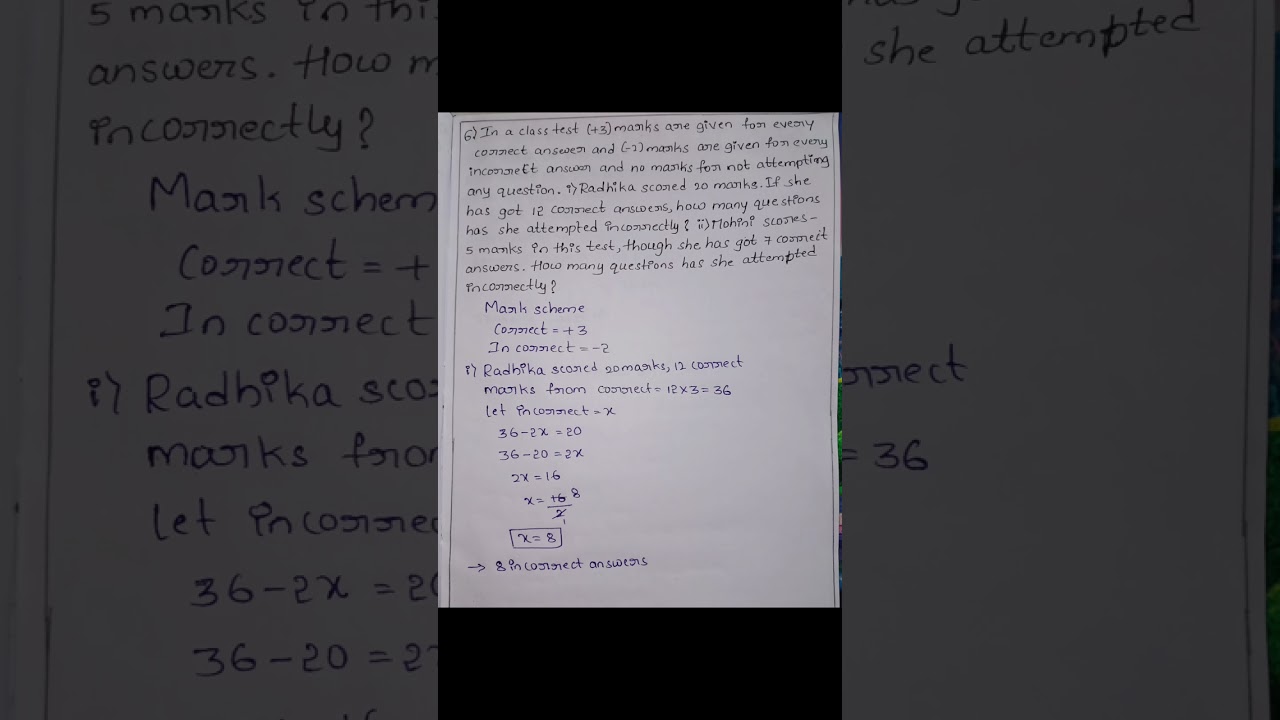 6) In a class test (+3) marks are given for every
correct answer and (-2) marks are given for every
incorrect answer and no marks for not attempting
any question. i) Radhika scored 20 marks. If she
has got 12 correct answers, how many questions
has she attempted incorrectly? ii) Mohini scores -
5 marks in this test, though she has got 7 correct
answers. How many questions has she attempted
incorrectly?
Mark scheme
Correct = +3
In correct = -2
i) Radhika scored 20 marks, 12 correct
marks from correct = 12×3 = 36
let incorrect = x
36-2x = 20
36-20 = 2x
2x = 16
x = 16 8
2 1
x = 8
→ 8 incorrect answers